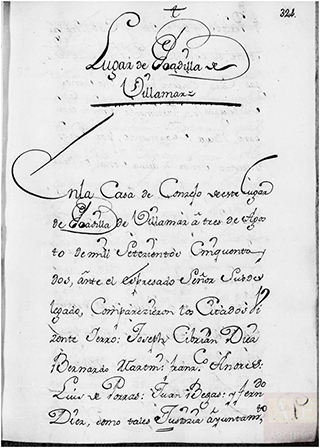 324.
Lugar de Boadilla de
Villamar
En la Casa de Conzejo de este Lugar
de Boadilla de Villamar à tres de Agos
to de mill Setezientos Cinquenta y
dos, ànte el expresado Señor Subde
legado, Comparezieron los Citados Vi
zente ferro: Joseph Cibrian Diez
Bernardo Martin: franco. Andres:
Luis de Porras: Juan Begas: y ferndo
Diez, como tales Justizia àyuntamto
AP